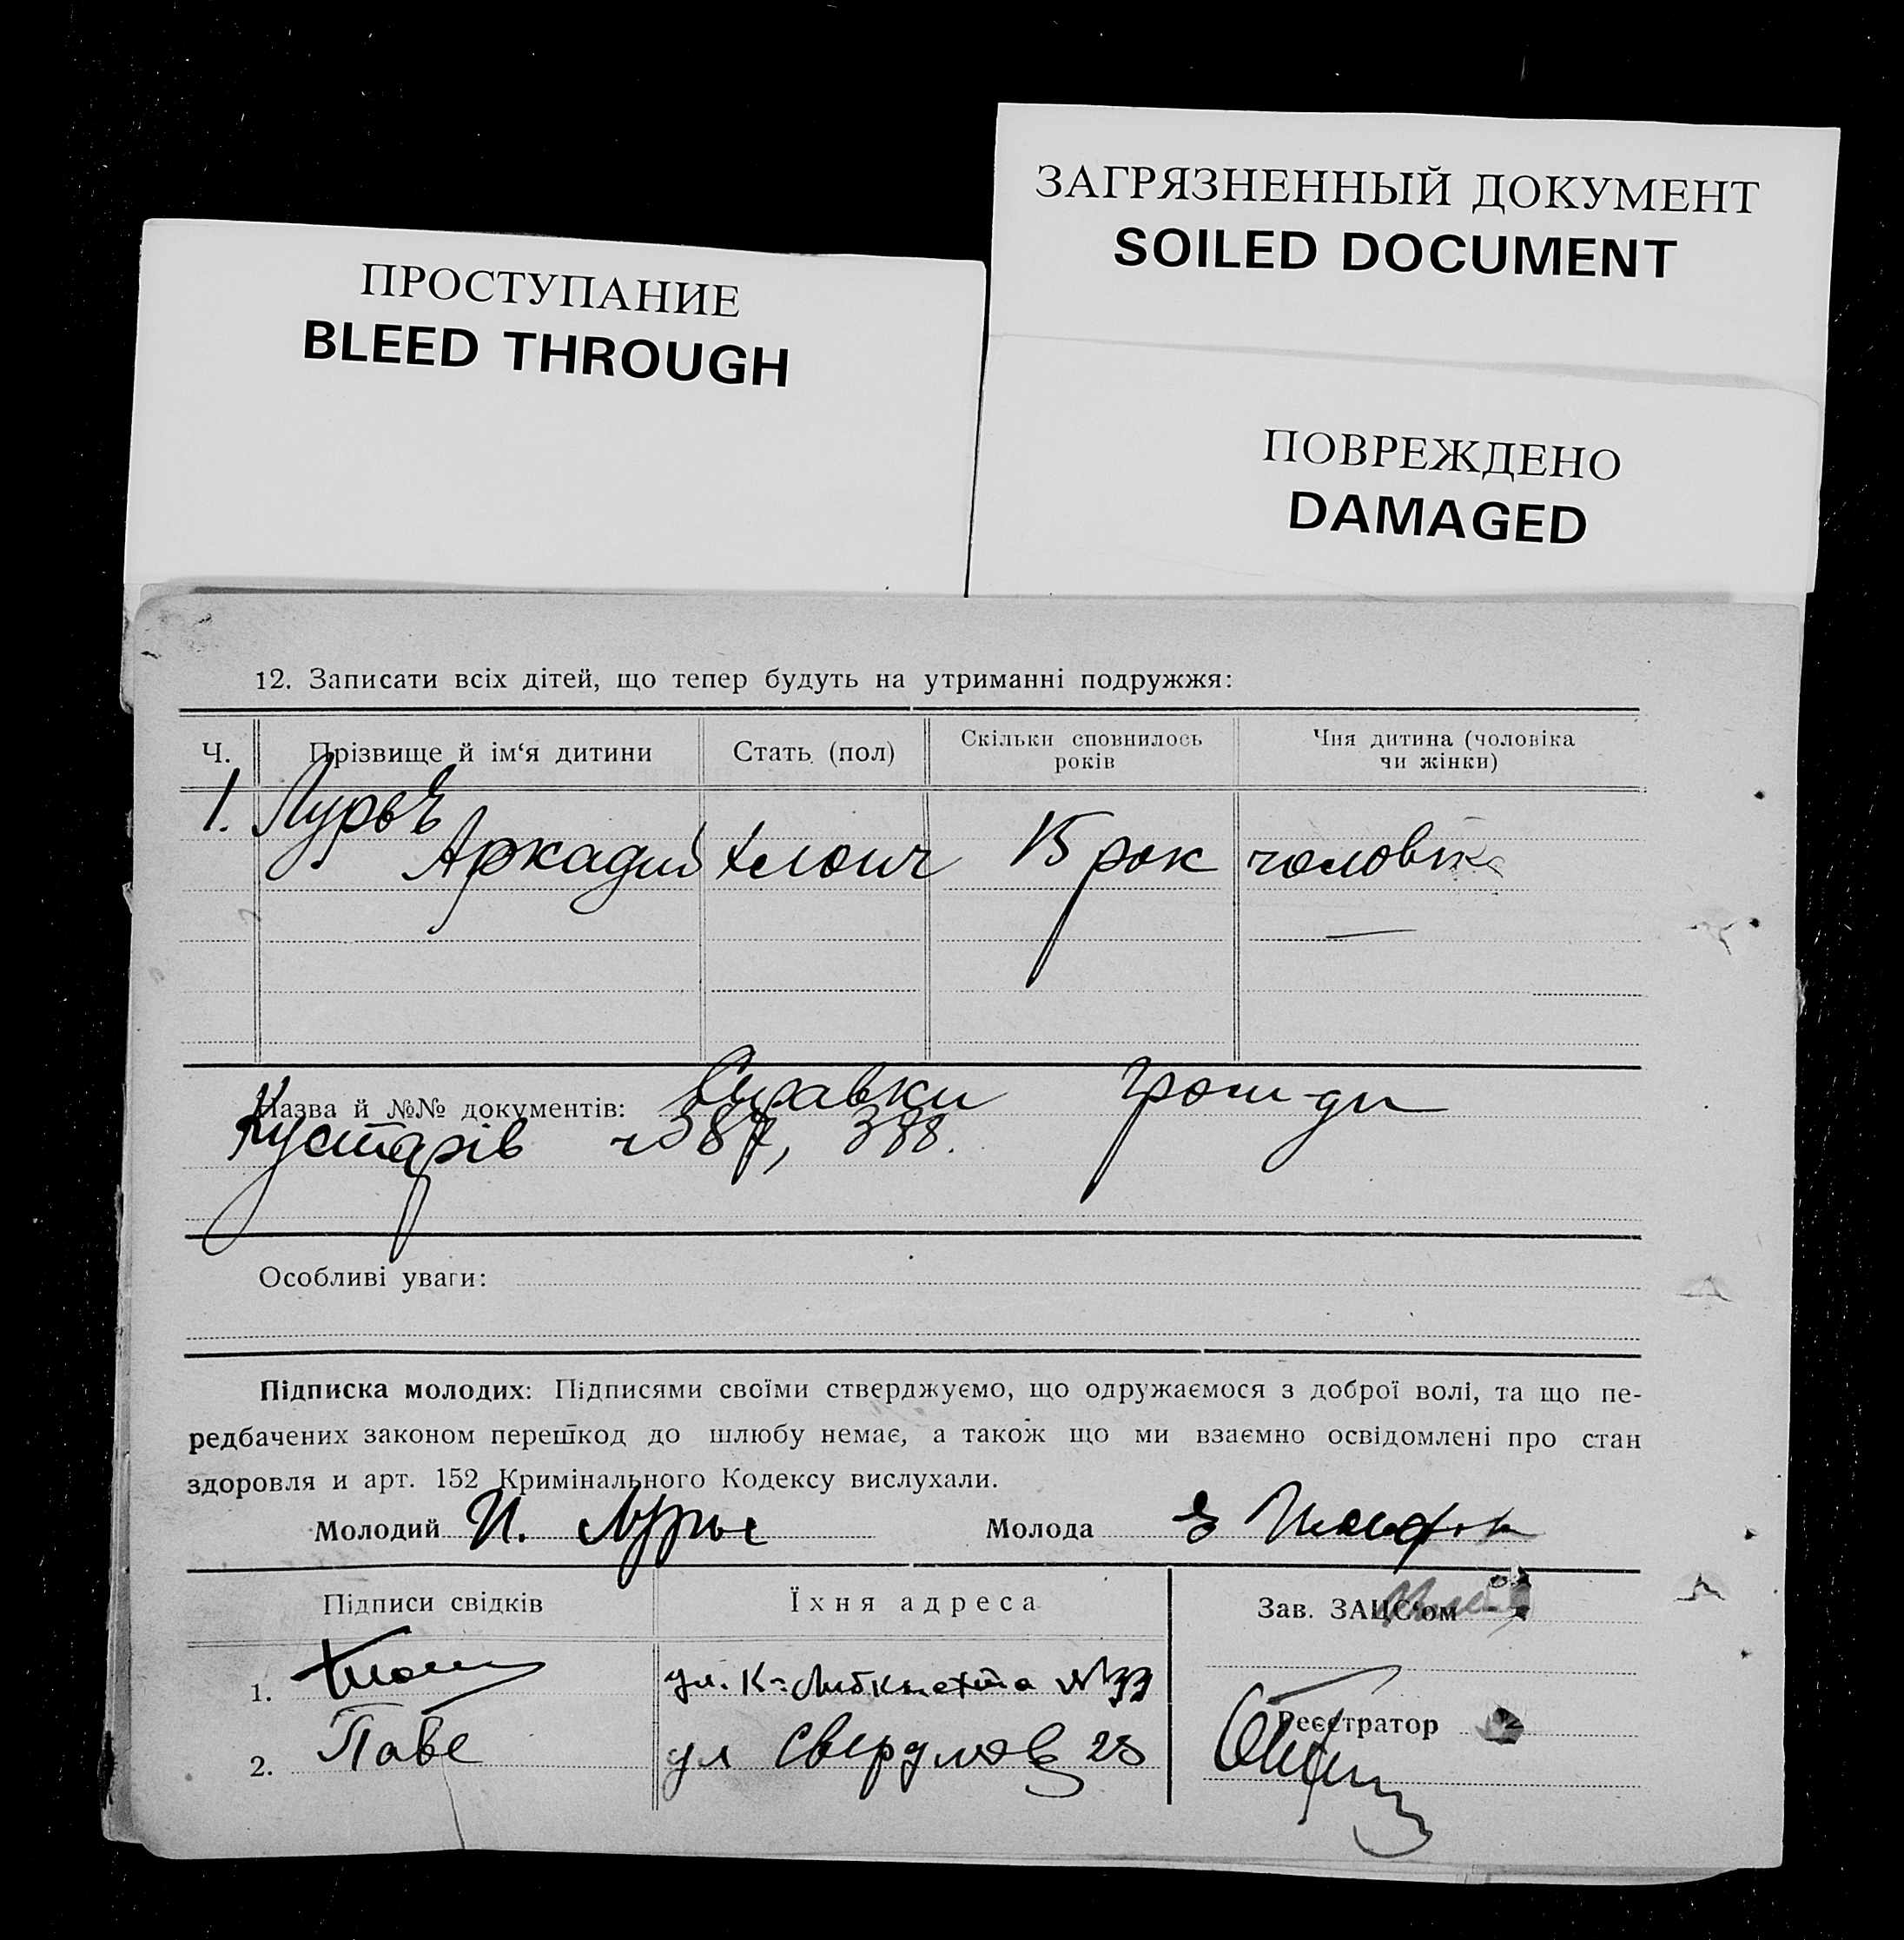 ЗАГРЯЗНЕННЫЙ ДОКУМЕНТ
SOILED DOCUMENT
ПРОСТУПАНИЕ
BLEED THROUGH
ПОВРЕЖДЕНО
DAMAGED
12. Записати всіх дітей, що тепер будуть на утриманні подружжя:
Ч. Прізвище й ім‘я дитини Стать (пол) Скільки сповнилось років Чия дитина (чоловіка чи жінки)
1. Лурье
Аркадий 15 рок чоловіка
Назва й №№ документів: Справки
Кустарів ч 387, 388.
Особливі уваги:
Підписка молодих: Підписями своїми стверджуємо, що одружаємося з доброї волі, та що пе-
редбачених законом перешкод до шлюбу немає, а також що ми взаємно освідомлені про стан
здоровля и арт. 152 Кримінального Кодексу вислухали.
Молодий И. Лурье Молода
Підписи свідків Їхня адреса Зав. ЗАЦС‘ом
1. ул. К-Либкнехта №33
2. ул Свердлова 28
Реєстратор